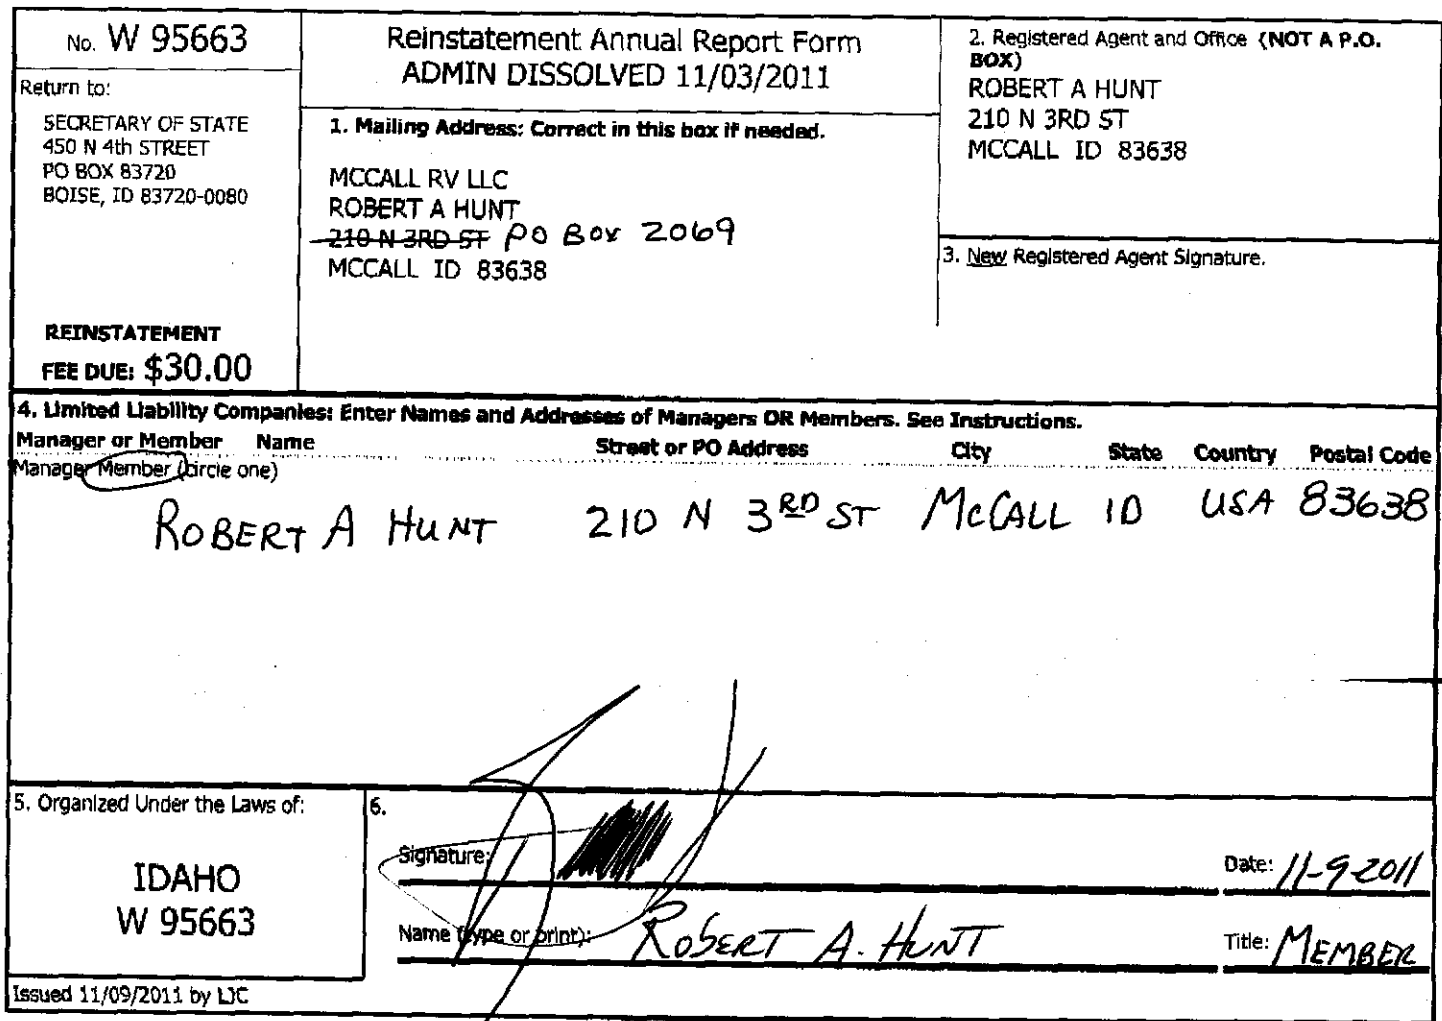 No. W 95663
Return to:
SECRETARY OF STATE
450 N 4th STREET
PO BOX 83720
BOISE, ID 83720-0080
REINSTATEMENT
FEE DUE: $30.00
Reinstatement Annual Report Form
ADMIN DISSOLVED 11/03/2011
1. Mailing Address: Correct in this box if needed.
MCCALL RV LLC
ROBERT A HUNT
210 N 3RD ST PO BOX 2069
MCCALL ID 83638
2. Registered Agent and Office (NOT A P.O.
BOX)
ROBERT A HUNT
210 N 3RD ST
MCCALL ID 83638
3. New Registered Agent Signature.
4. Limited Liability Companies: Enter Names and Addresses of Managers OR Members. See Instructions.
Manager or Member Name Street or PO Address City State Country Postal Code
Manager Member (circle one)
ROBERT A HUNT 210 N 3RD ST McCALL ID USA 83638
5. Organized Under the Laws of:
IDAHO
W 95663
6.
Signature:
Date: 11-9-2011
Name (type or print): ROBERT A. HUNT
Title: MEMBER
Issued 11/09/2011 by LJC